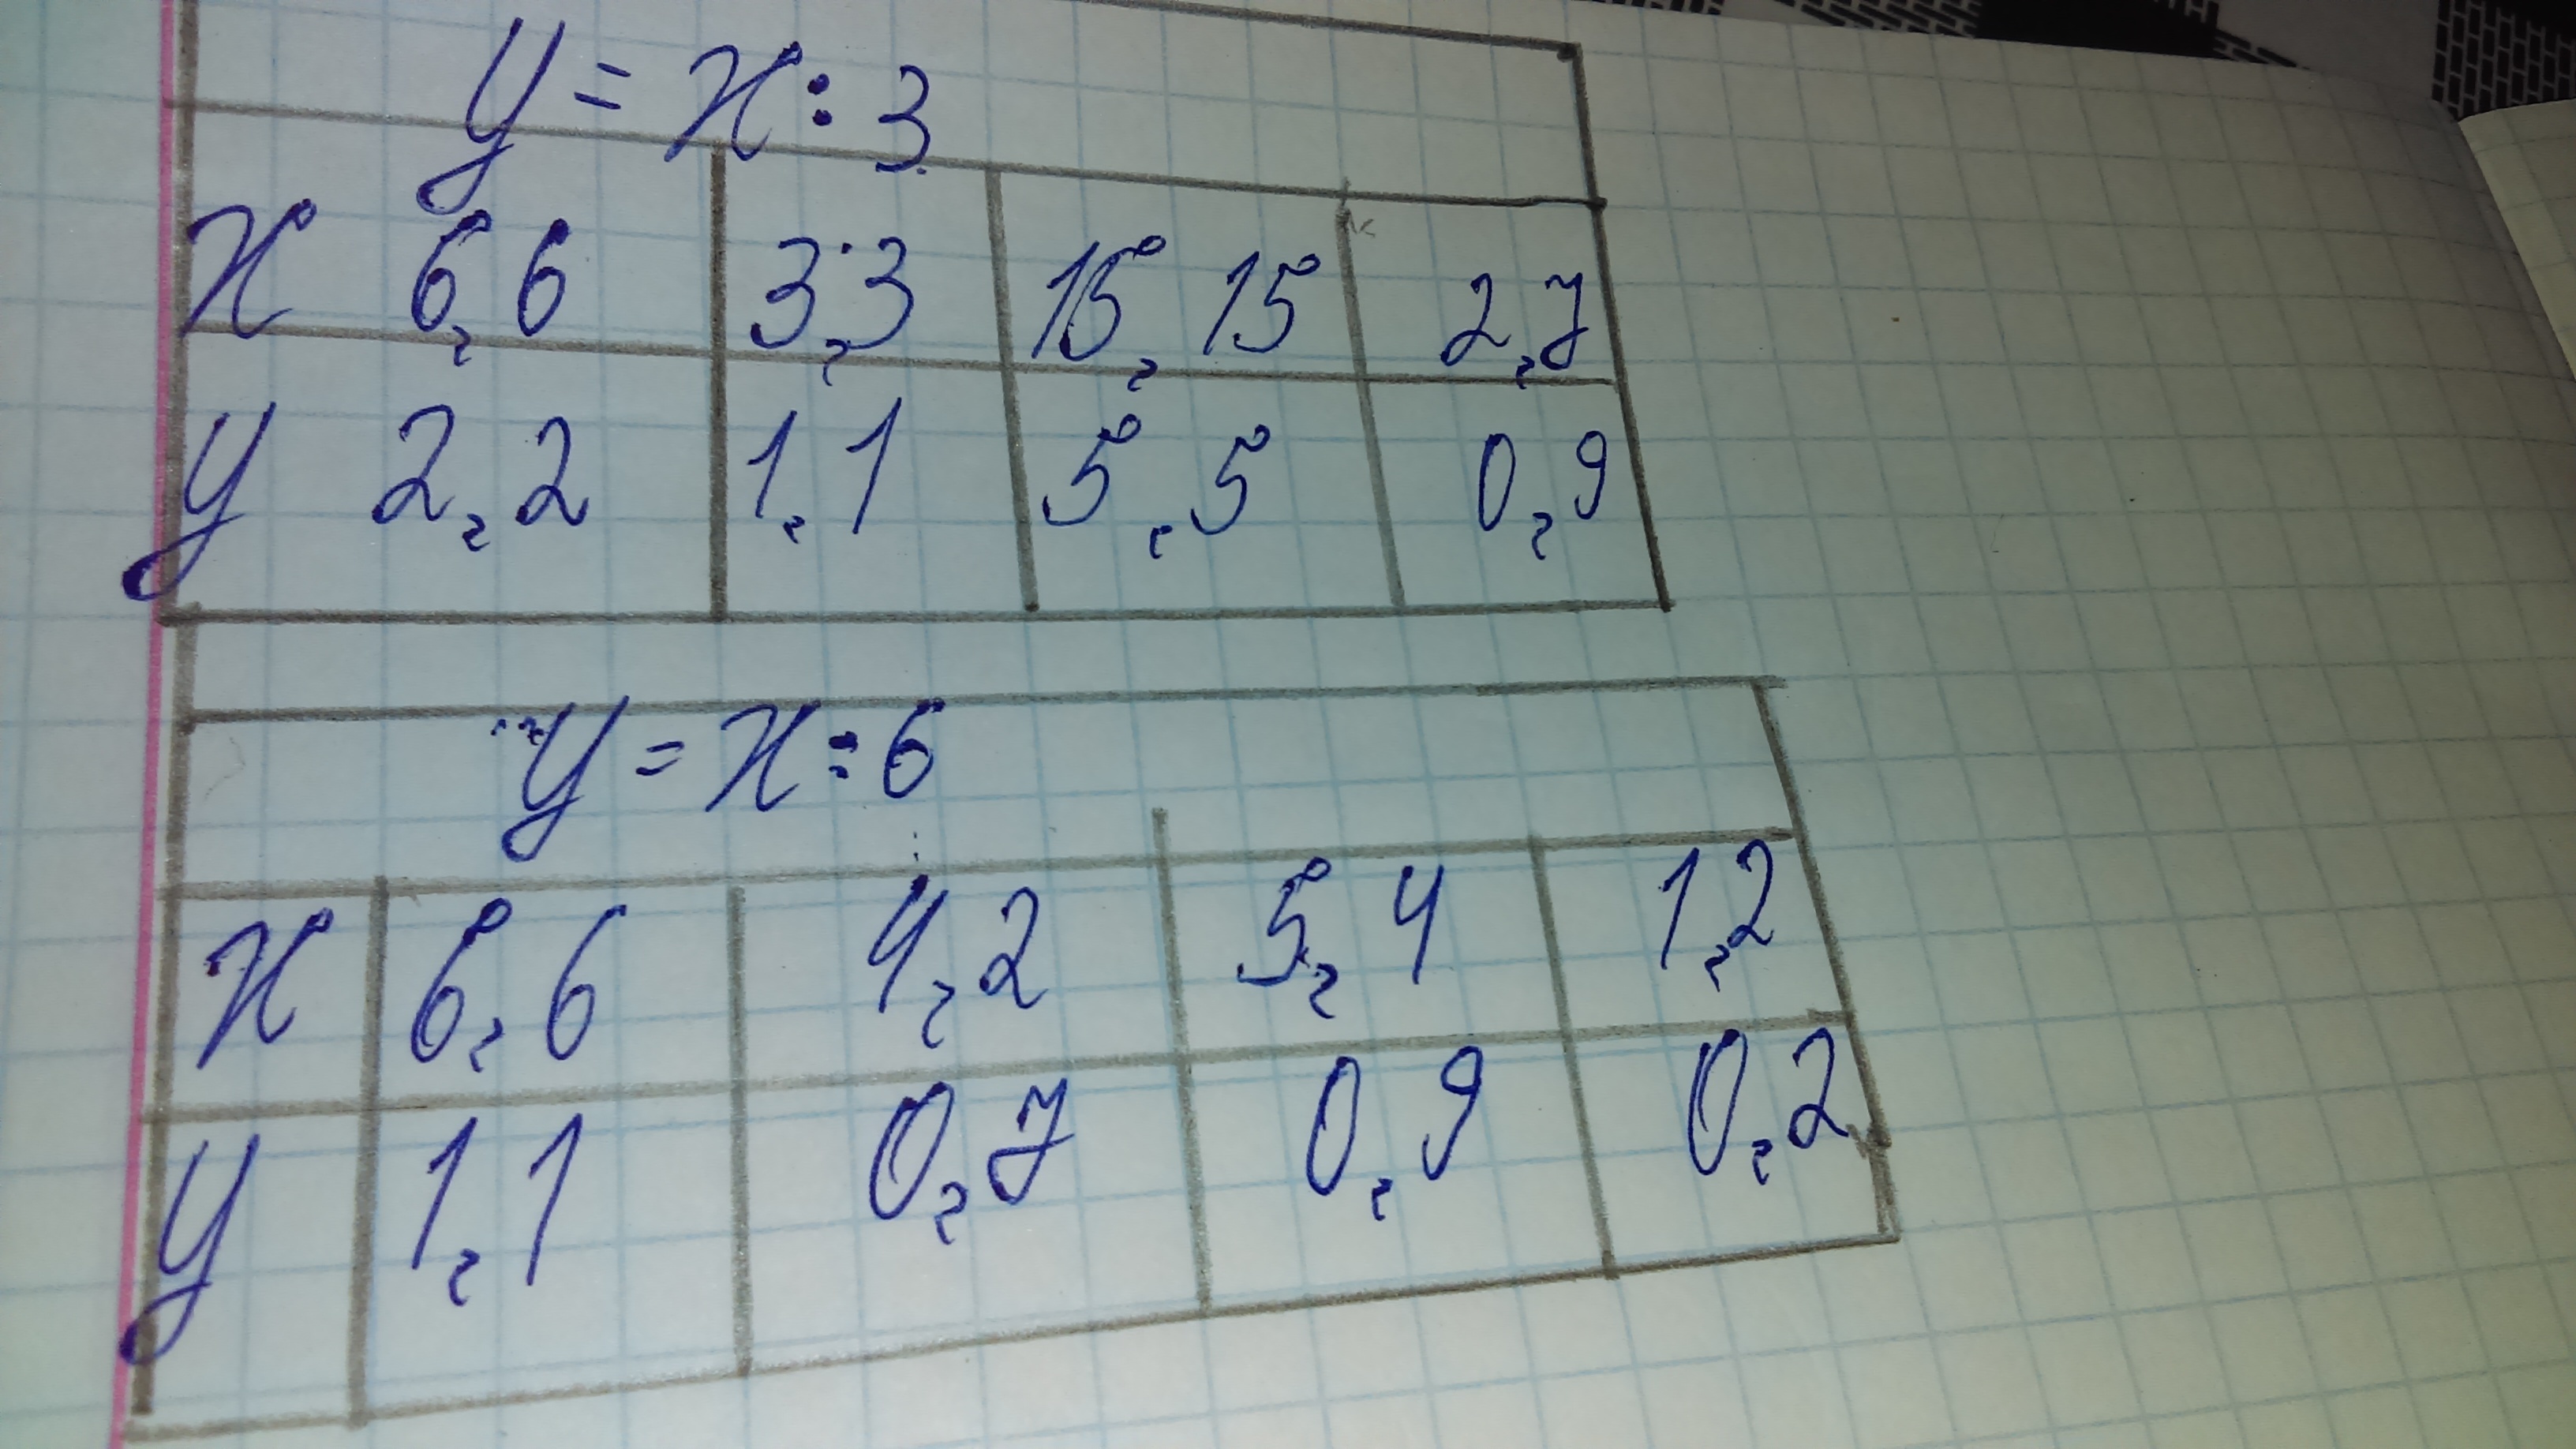 y = x : 3
x 6,6 3,3 15,15 2,7
y 2,2 1,1 5,5 0,9
y = x : 6
x 6,6 4,2 5,4 1,2
y 1,1 0,7 0,9 0,2